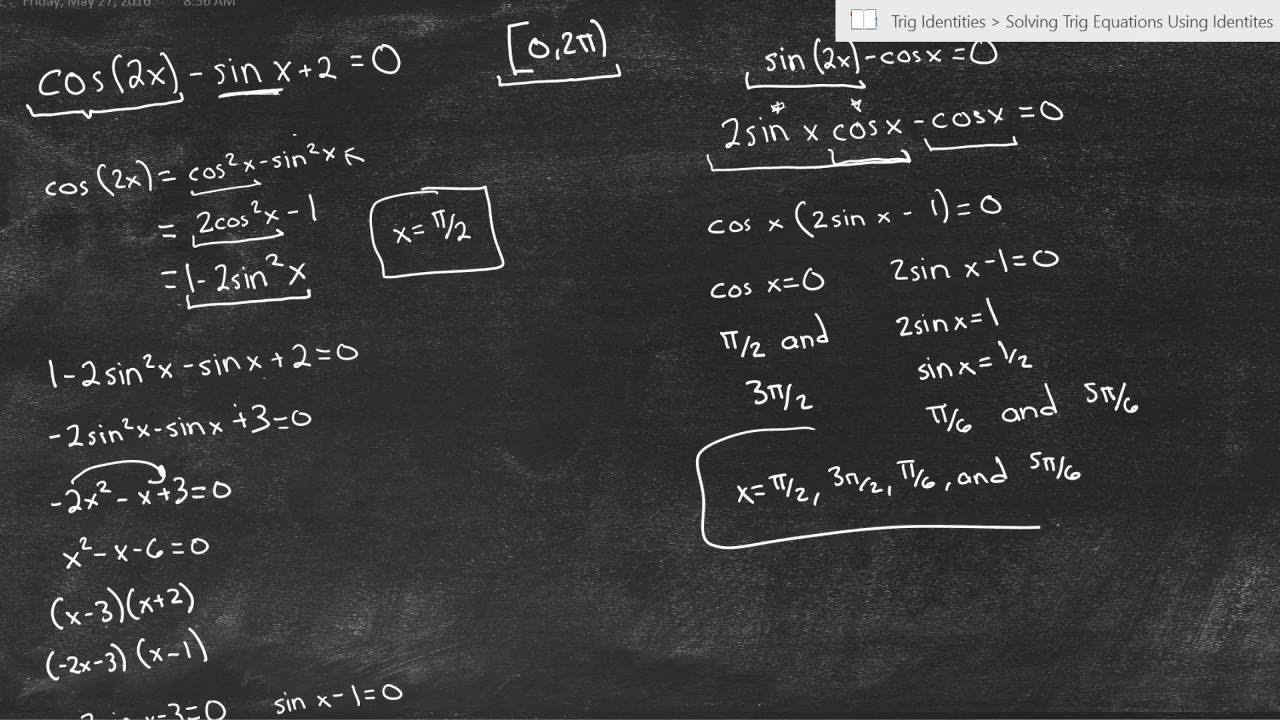 Friday, May 27, 2016 8:56 AM
Trig Identities > Solving Trig Equations Using Identites
cos(2x) - sin x + 2 = 0
[0, 2π)
cos(2x) = cos²x - sin²x
= 2cos²x - 1
= 1 - 2sin²x
x = π/2
1 - 2sin²x - sin x + 2 = 0
-2sin²x - sin x + 3 = 0
-2x² - x + 3 = 0
x² - x - 6 = 0
(x-3)(x+2)
(-2x-3)(x-1)
x-3=0 sin x - 1 = 0
sin(2x) - cos x = 0
2sin x cos x - cos x = 0
cos x (2sin x - 1) = 0
cos x = 0 2sin x - 1 = 0
π/2 and 2sin x = 1
3π/2 sin x = 1/2
π/6 and 5π/6
x = π/2, 3π/2, π/6, and 5π/6